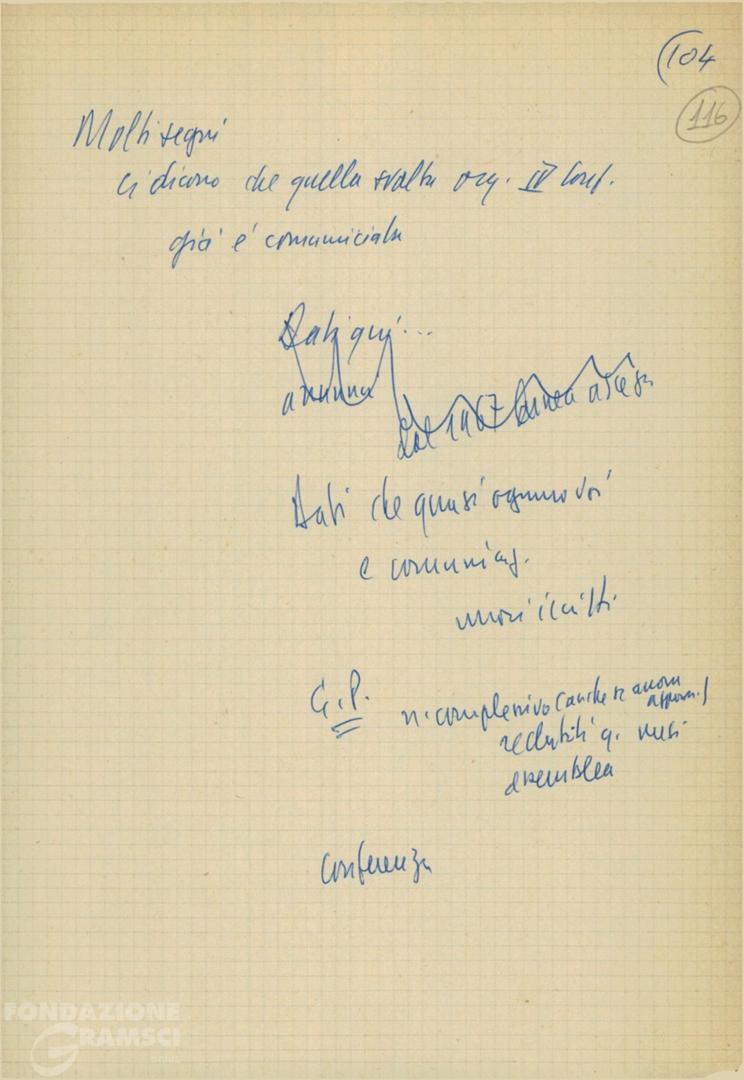 104
116
Molti segni
ci dicono che quella svolta org. IV Conf.
già è cominciata
Dati qui...
dal 1967
Dati che quasi ognuno voi
è
nuovi iscritti
G.P.
n. complessivo (anche se ancora approssim.)
reclutati q. mesi
assemblea
Conferenza
FONDAZIONE
GRAMSCI